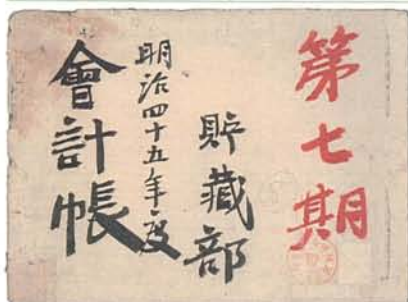 第七期
貯藏部
明治四十五年度
會計帳